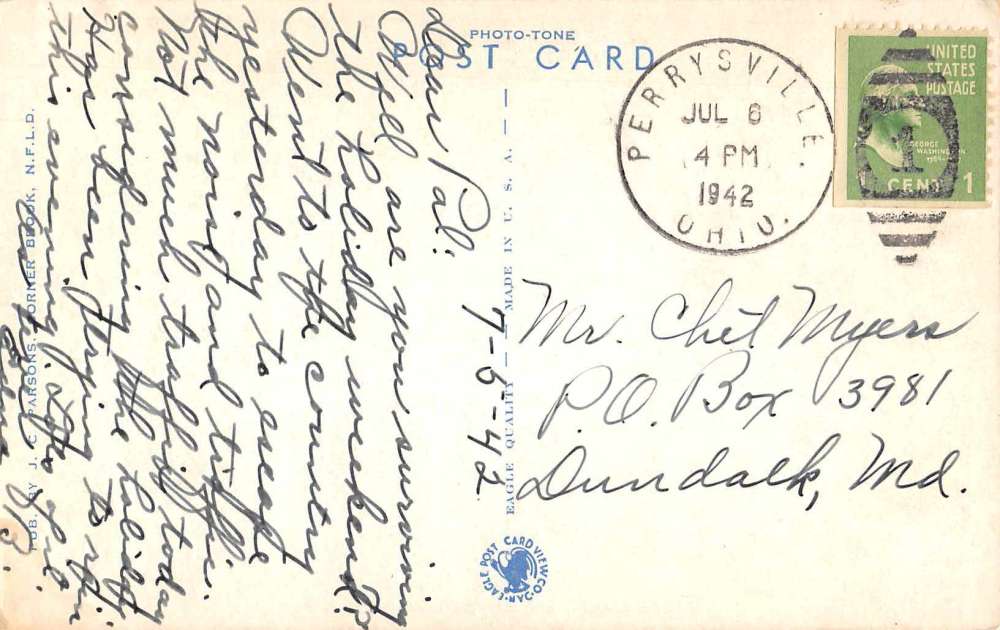 PHOTO-TONE
POST CARD
PERRYSVILLE.
OHIO.
JUL 6
4 PM
1942
UNITED
STATES
POSTAGE
GEORGE
WASHINGTON
1
CENT 1
7-5-42
Dear Pal:
Well are you surviving
the holiday weekend?
Went to the country
yesterday to escape
the noise and traffic.
Not much traffic today
considering the holiday.
Has been trying to rain
this evening.
Mr. Chet Myers
P.O. Box 3981
Dundalk, Md.
EAGLE QUALITY — MADE IN U. S. A. —
PUB. BY J. C. PARSONS, CORNER BROOK, N.F.L.D.
EAGLE POST CARD VIEW CO.